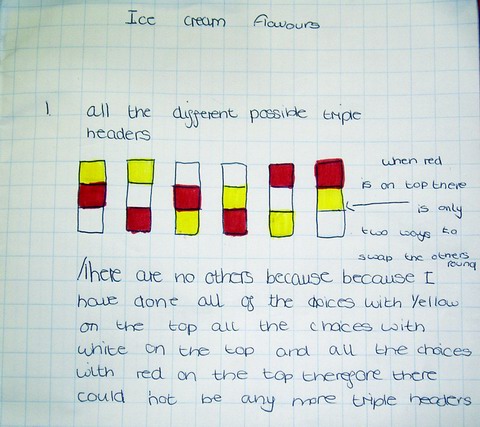 Ice cream flavours
1 all the different possible triple
headers
when red
is on top there
is only
two ways to
swap the others
round
There are no others because because I
have done all of the choices with Yellow
on the top all the choices with
white on the top and all the choices
with red on the top therefore there
could not be any more triple headers